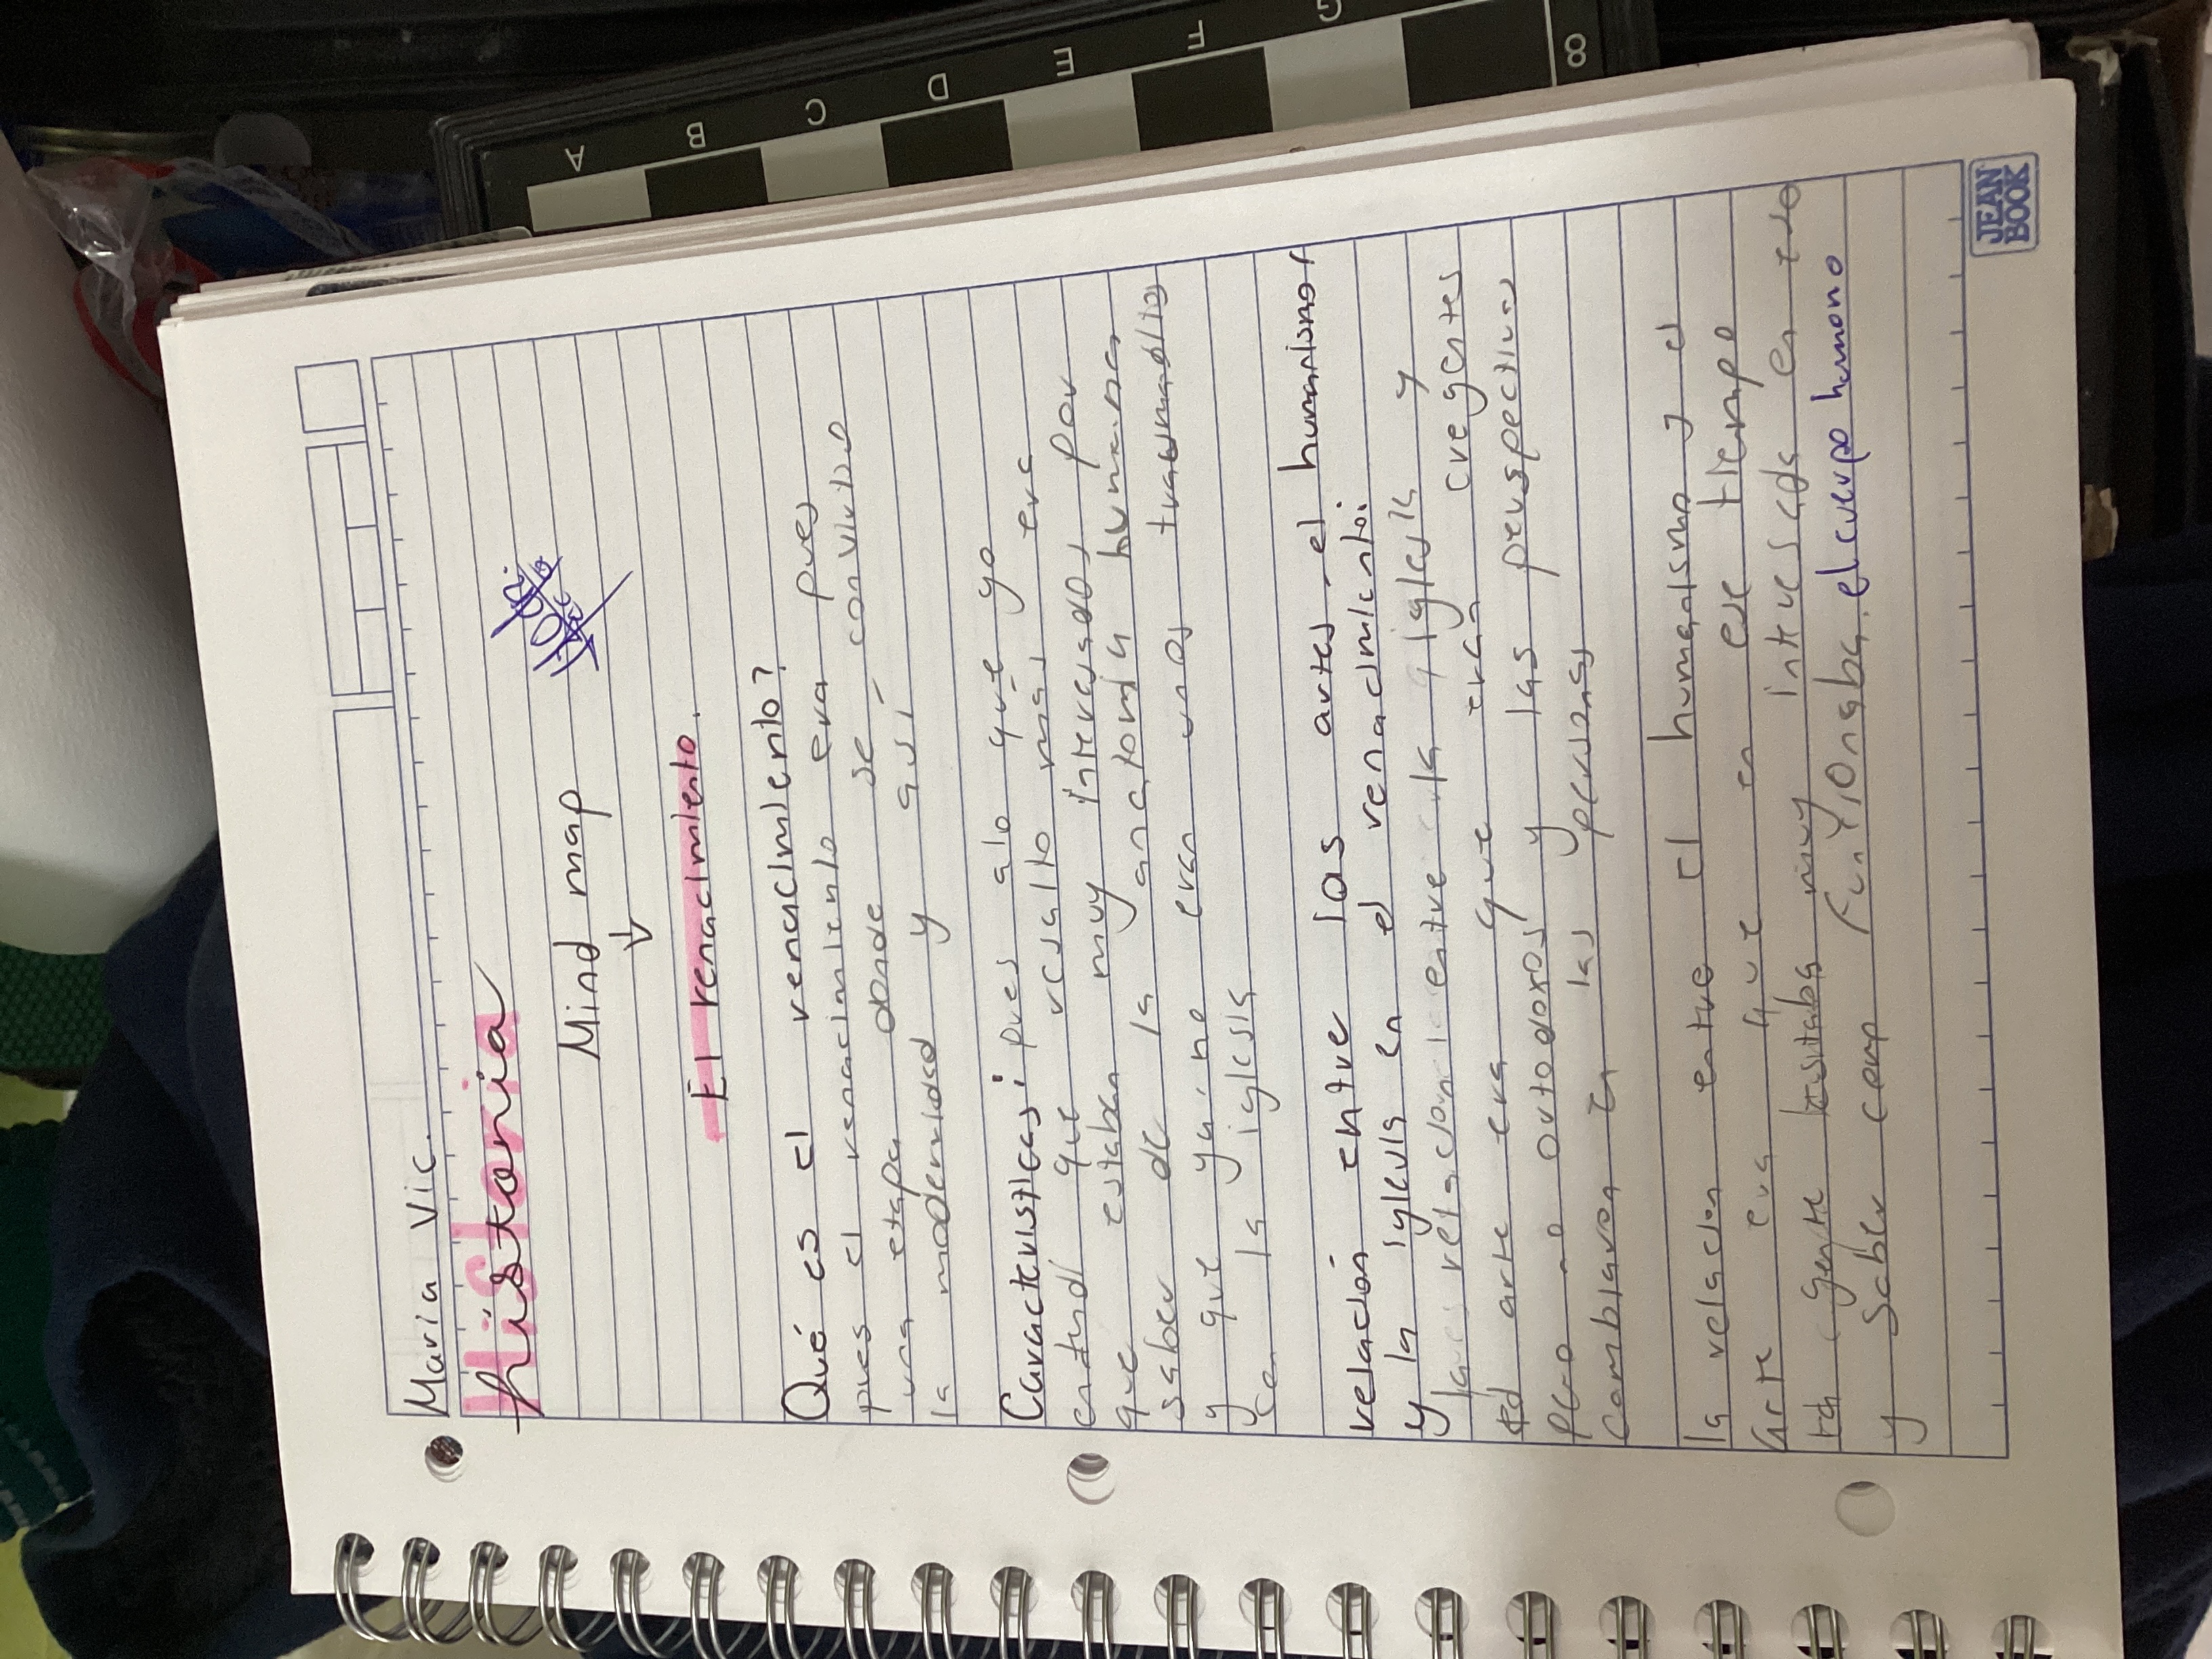 Maria Vic.
historia
Mind map
El renacimiento.
Qué es el renacimiento?
pues el renacimiento era pues
una etapa donde se convirtio
la modernidad y así
Caracteristicas: pues alo que yo
entndí que resalto mas era
que estaban muy interesados por
saber de la anatomia humana
y que ya no eran unos
con la iglesia
relación entre las artes el humanismo
y la iglesia en el renacimiento:
la relacion entre la iglesia y
el arte era que eran creyentes
pero no ortodoxos y las perspectivas
cambiaron en las personas
la relacion entre el humanismo y el
arte era que en ese tiempo
la gente estaba muy intersada en
y saber como funcionaba el cuerpo humano
JEAN BOOK
A B C D E F G
8